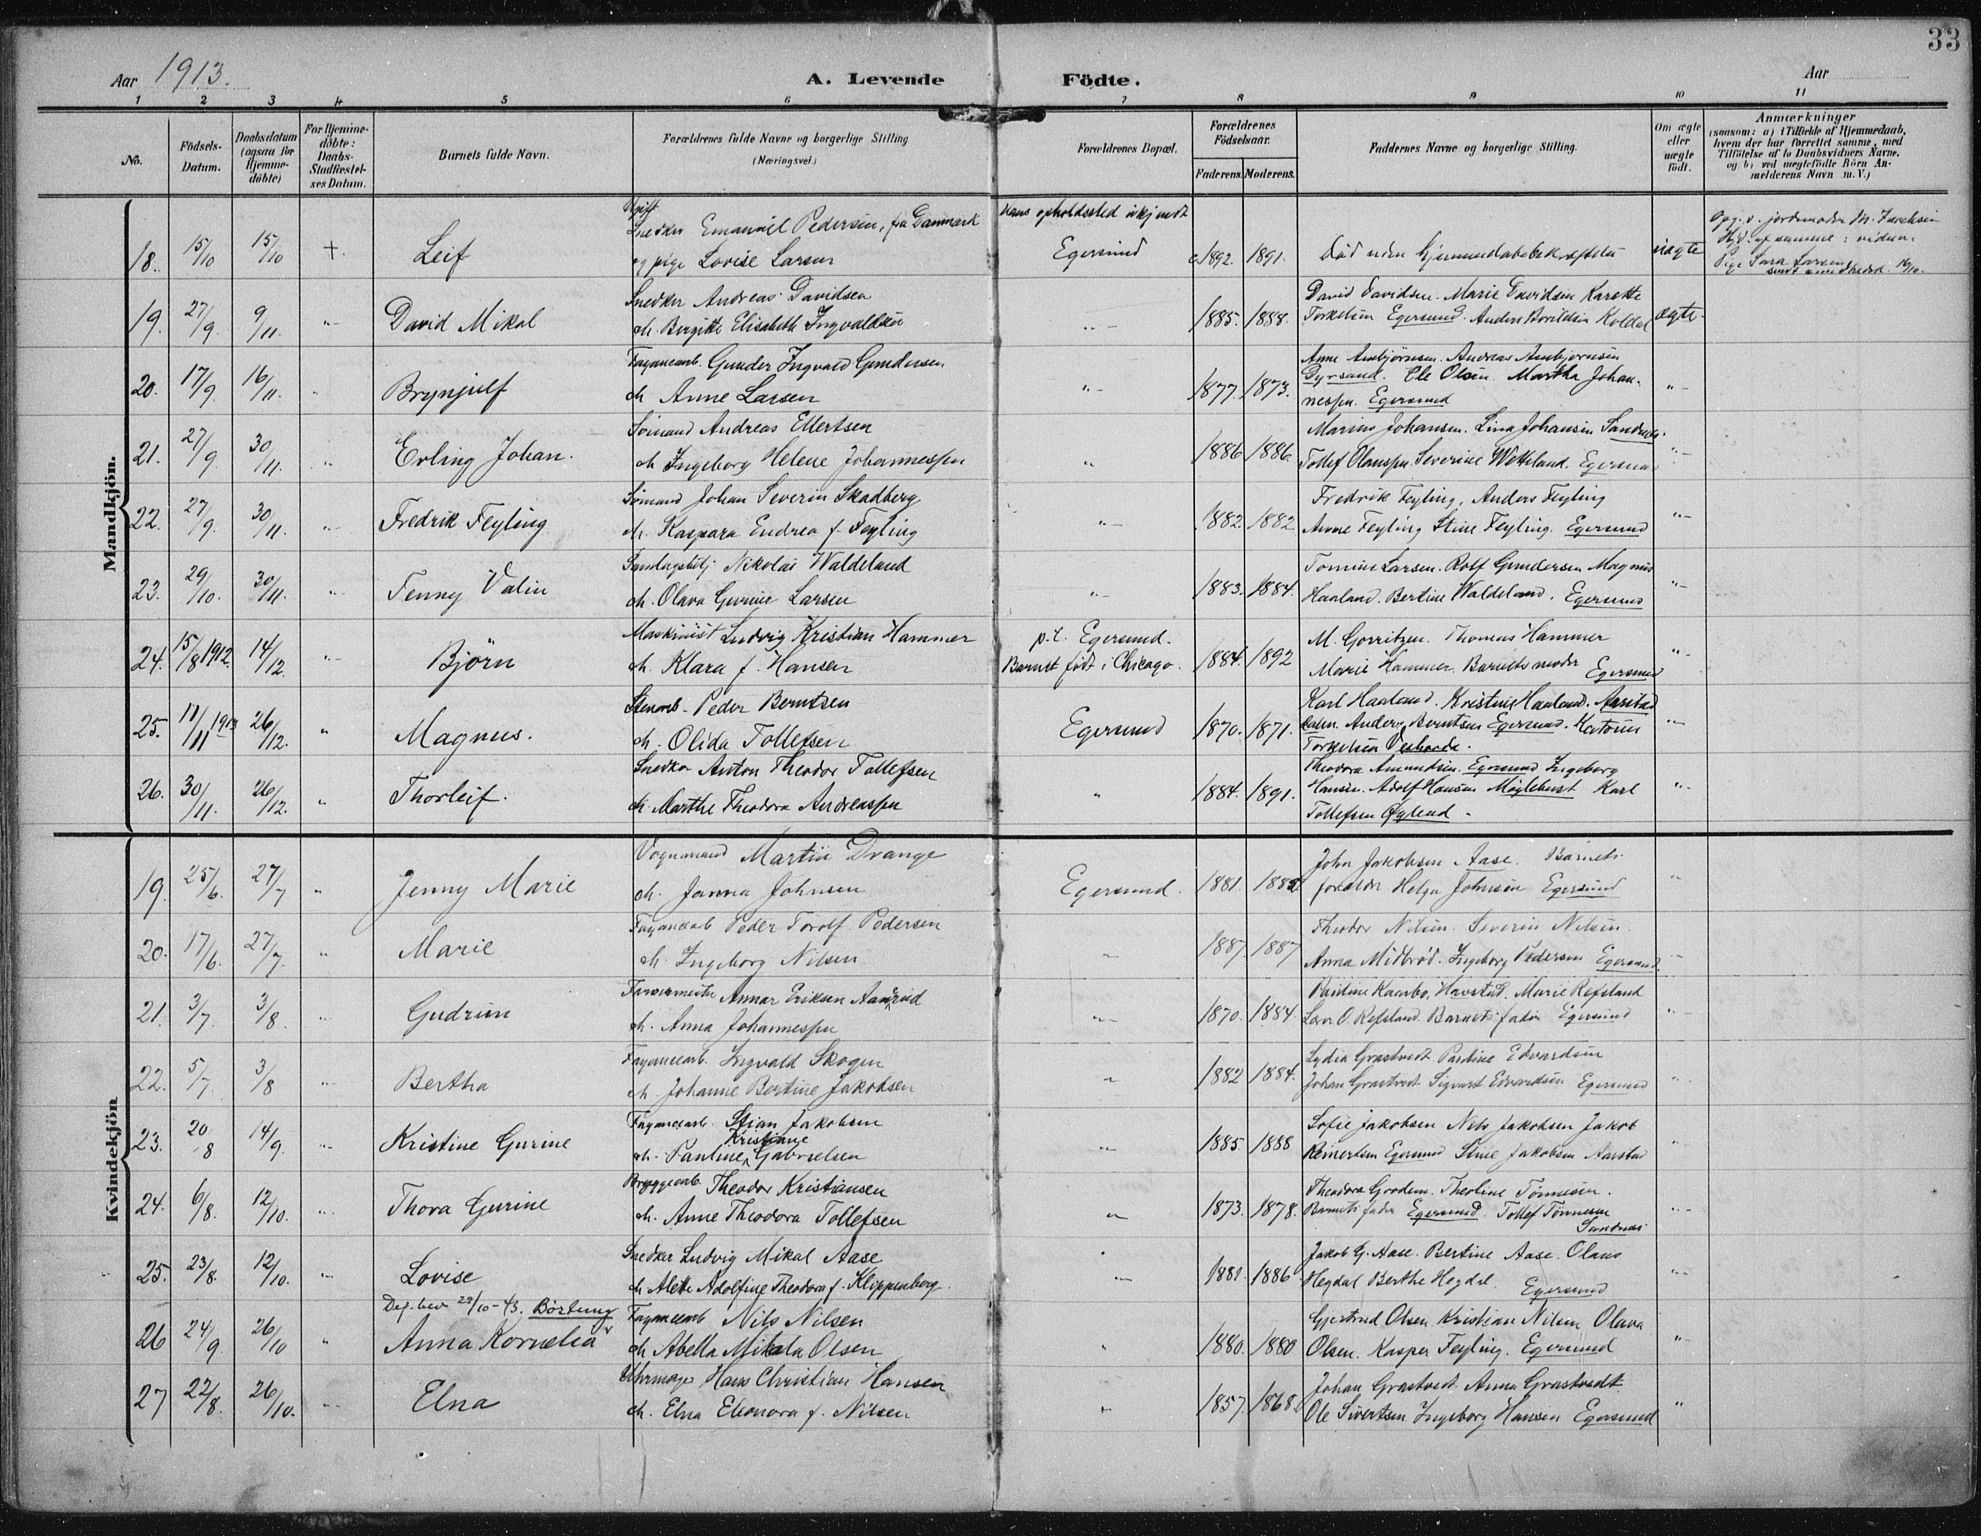 33
Aar 1913.
A. Levende Födte.
Aar
1 2 3 4 5 6 7 8 9 10 11
No.
Födsels-Datum.
Daabsdatum (ogsaa for Hjemme-döbte)
For Hjemme-döbte: Daabs-Stadfæstel-ses Datum.
Barnets fulde Navn.
Forældrenes fulde Navne og borgerlige Stilling (Næringsvei.)
Forældrenes Bopæl.
Forældrenes Födselsaar.
Faderens. Moderens.
Faddernes Navne og borgerlige Stilling.
Om ægte eller uægte födt.
Anmærkninger
(saasom: a) i Tilfælde af Hjemmedaab, hvem der har forrettet samme, med Tilföielse af to Daabsvidners Navne, og b) ved uægtefödte Börn An-melderens Navn m. V.)
Mandkjön.
18. 15/10 15/10 +. Leif
Ugift Snedker Emanuel Pedersen, fra Danmark
og pige Lovise Larsen
Hans opholdssted ukjendt
Egersund
c. 1892. 1891.
Død uden hjemmedaabsbekræftelse
uægte
Opg. v. jordmoder M.
Pige Sara Larsen
19. 27/9. 9/11. David Mikal
Snedker Andreas Davidsen
ch. Bergitte Elisabeth Ingvaldsen
1885. 1888.
David Davidsen. Marie Davidsen Karette
Torkelsen Egersund. Anders Koldal
ægte
20. 17/9. 16/11. Brynjulf
Fayancearb. Gunder Ingvald Gundersen
ch Anne Larsen
1877. 1873.
Anne Ambjörnsen. Andreas Ambjörnsen
Ole Olsen. Martha Johan-
nesen. Egersund
21. 27/9. 30/11. Erling Johan.
Sömand Andreas Ellertsen
ch Ingeborg Helene Johannesen
1886 1886.
Marius Johansen. Lina Johansen Sandnes.
Tollef Olausen. Severine Wetteland. Egersund
22. 27/9. 30/11. Fredrik Feyling
Sömand Johan Severin Skadberg
ch. Kaspara Endrea f. Feyling
1882. 1882.
Fredrik Feyling, Anders Feyling
Anne Feyling Stine Feyling. Egersund
23. 29/10. 30/11. Fenny Valin
Nikolai Waldeland
ch. Olava Gurine Larsen
1883. 1884.
Tomine Larsen. Rolf Gundersen Magnus
Haaland. Bertine Waldeland. Egersund
24. 15/8 1912. 14/12. Björn
Maskinist Ludvig Kristian Hammer
ch Klara f. Hansen
p.t. Egersund.
Barnet født i Chicago.
1884. 1892
M. Gorritzen. Thomas Hammer
Marie Hammer. Barnets moder Egersund
25. 11/11 1913 26/12. Magnus.
Stenarb. Peder Berntsen
ch. Olida Tollefsen
Egersund
1870. 1871.
Karl Haaland. Kristine Haaland. Aarstad
Anders Berntsen Egersund.
Torkelsen
26. 30/11. 26/12. Thorleif.
Snedker Anton Theodor Tollefsen
ch Marthe Theodora Andreasen
1884. 1891.
Theodora Amundsen. Egersund Ingeborg
Hansen. Adolf Hansen Karl
Tollefsen
Kvindekjön
19. 25/6. 27/7 Jenny Marie
Vognmand Martin Drange
ch. Janna Johnsen
Egersund.
1881. 1882
John Jakobsen Aase. Barnets
forældre Helga Johnsen Egersund
20. 17/6. 27/7. Marie
Fayancearb Peder Torolf Pedersen
ch. Ingeborg Nilsen
1887. 1887
Theodor Nilsen. Severin Nilsen.
Anna Midbrød. Ingeborg Pedersen Egersund.
21. 3/7 3/8. Gudrun
Farvermester Annar Eriksen Aanrud
ch. Anna Johannesen
1870. 1884
Pauline Kaarbo, Havstad. Marie Refsland
O. Refsland. Barnets fader Egersund
22. 5/7. 3/8 Bertha
Fayancearb. Ingvald Skogen
ch. Johanne Bertine Jakobsen
1882 1884.
Lydia Grastvedt Pauline Edvardsen
Johan Grastvedt Sigvart Edvardsen Egersund
23. 20/8 14/9. Kristine Gurine
Fayancearb. Stian Jakobsen
ch. Pauline Kristiane Gabrielsen
1885. 1888
Sofie Jakobsen Nils Jakobsen Jakob
Reinertsen Egersund Stine Jakobsen Aarstad
24. 6/8. 12/10. Thora Gurine
Bryggearb. Theodor Kristiansen
ch. Anne Theodora Tollefsen
1873. 1878.
Theodora Theoline Tönnesen.
Barnets fader Egersund. Tollef Tönnesen
Sandnes
25. 23/8. 12/10. Lovise
Snedker Ludvig Mikal Aase
ch Alette Adolfine Theodora f. Klippenberg.
1881. 1886
Jakob G. Aase. Bertine Aase. Olaus
Hegdal Berthe Hegdal Egersund
Dep. bev 29/10-43. Börtung
26 24/9 26/10 Anna Kornelia
Fayancearb Nils Nilsen
ch Abella Mikala Olsen
1880. 1880
Gjertrud Olsen Kristian Nilsen Olava
Olsen. Kasper Feyling. Egersund
27 22/8. 26/10. Elna
Uhrmager Hans Christian Hansen
ch. Elna Eleonora f. Nilsen
1857. 1868.
Johan Grastvedt. Anna Grastvedt
Ole Sivertsen Ingeborg Hansen Egersund